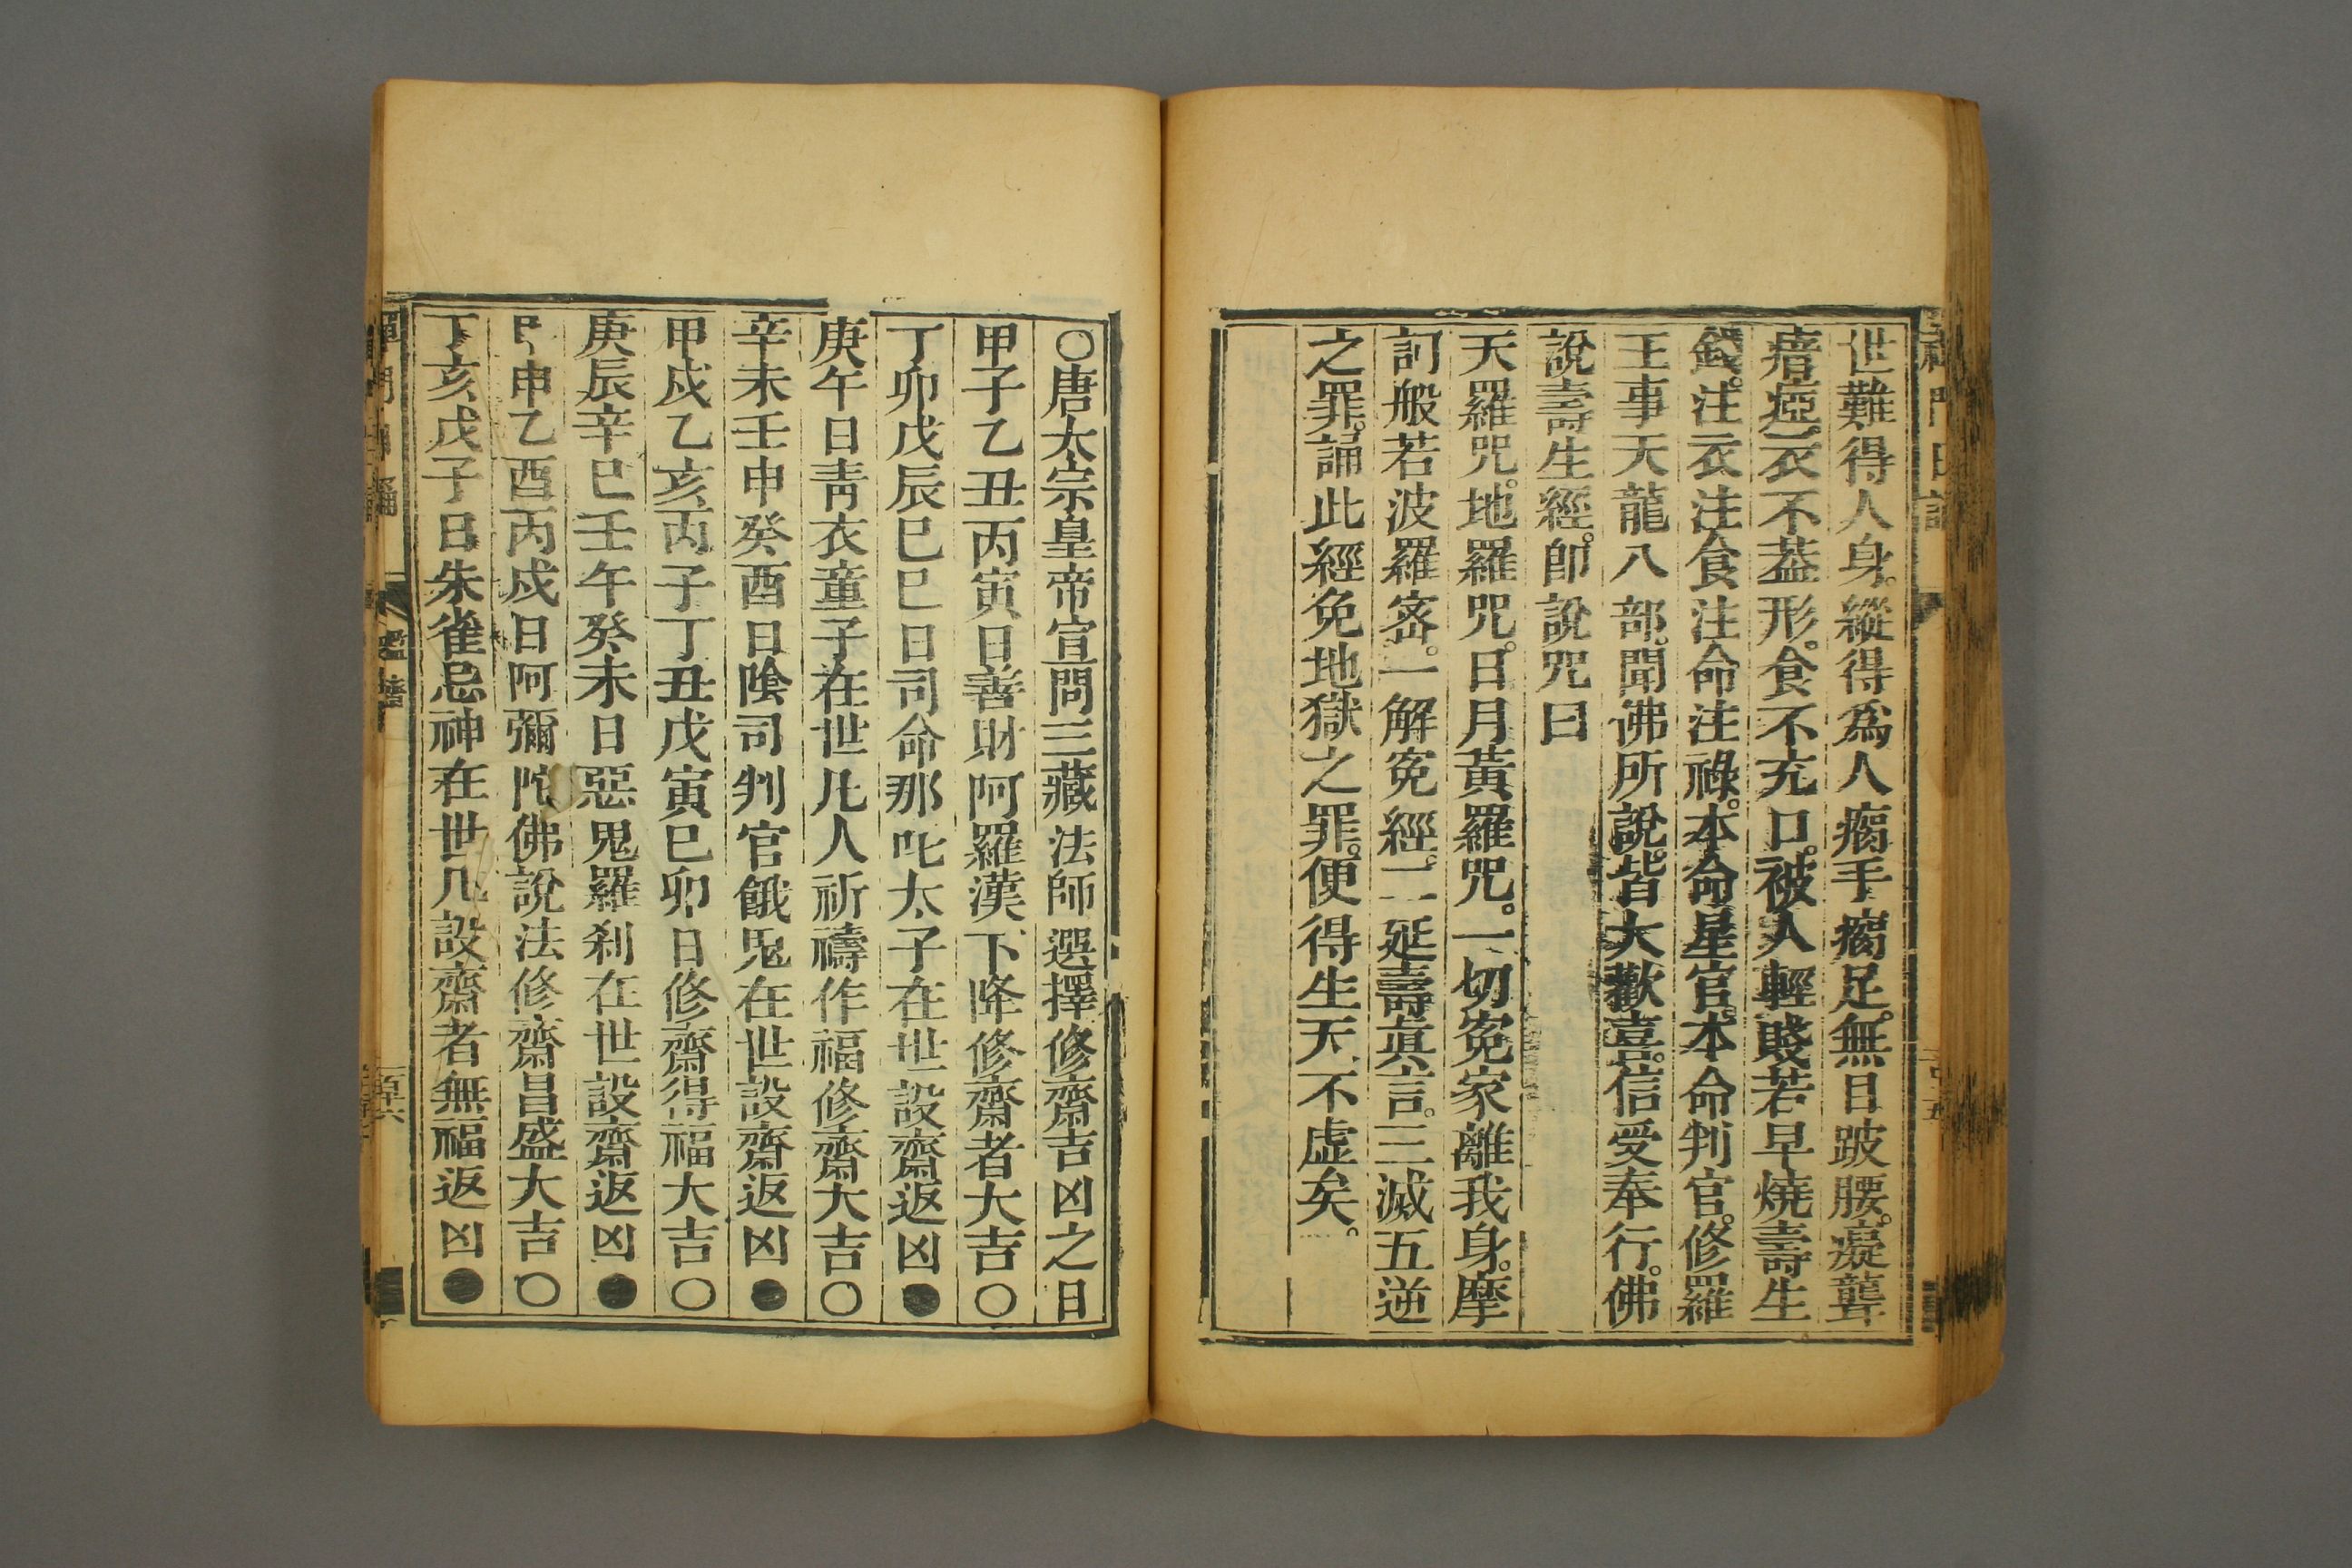 世難得人身。縱得爲人瘸手瘸足。無目跛腰。癡聾
瘖瘂。衣不蓋形。食不充口。被人輕賤若早燒壽生
錢。注衣注食注命注祿。本命星官。本命判官。修羅
王事天龍八部。聞佛所說。皆大歡喜。信受奉行。佛
說壽生經。卽說咒曰
天羅咒。地羅咒。日月黃羅咒。一切寃家離我身。摩
訶般若波羅宻。一解寃經。二延壽眞言。三滅五逆
之罪。誦此經免地獄之罪。便得生天。不虛矣。
〇唐太宗皇帝宣問三藏法師選擇修齋吉凶之日
甲子乙丑丙寅日善財阿羅漢下降修齋者大吉〇
丁卯戊辰巳巳日司命那吒太子在世設齋返凶●
庚午日靑衣童子在世凡人祈禱作福修齋大吉〇
辛未壬申癸酉日隂司判官餓鬼在世設齋返凶●
甲戌乙亥丙子丁丑戊寅巳卯日修齋得福大吉〇
庚辰辛巳壬午癸未日惡鬼羅刹在世設齋返凶●
甲申乙酉丙戌日阿彌陀佛說法修齋昌盛大吉〇
丁亥戊子日朱雀忌神在世凡設齋者無福返凶●